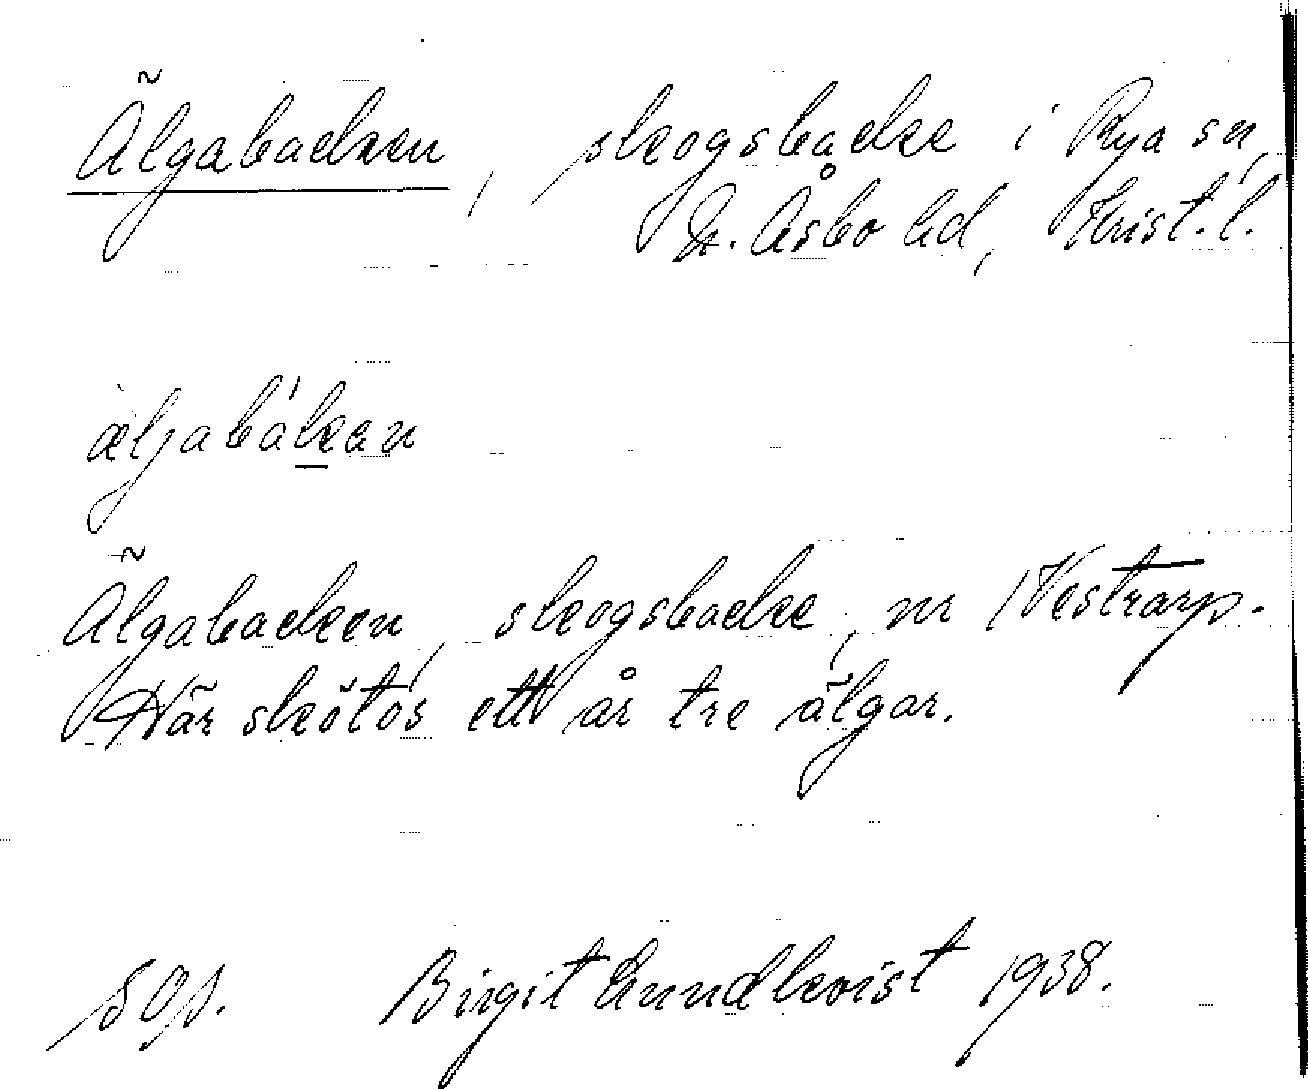 Älgabacken, skogsbacke i Rya sn,
N. Åsbo hd, Krist. l.
æljabákan
Älgabacken, skogsbacke, nr Vestrarp.
Här skötos ett år tre älgar.
Birgit Lundkvist 1938.